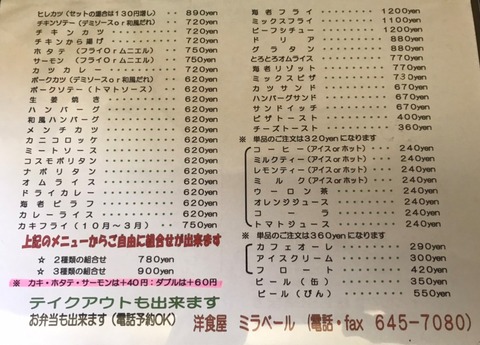 ヒレカツ (セットの場合は130円増し) ・・ 890yen
チキンソテー (デミソースor和風だれ) ・・ 620yen
チキンカツ ・・・・・ 620yen
チキンから揚げ ・・・・・ 720yen
ホタテ (フライOrムニエル) ・・・ 750yen
サーモン (フライOrムニエル) ・・・ 750yen
カツカレー ・・・・・ 720yen
ポークカツ (デミソースor和風だれ) ・・ 620yen
ポークソテー (トマトソース) ・・・ 620yen
生姜焼き ・・・・・ 620yen
ハンバーグ ・・・・・ 620yen
和風ハンバーグ ・・・・・ 620yen
メンチカツ ・・・・・ 620yen
カニコロッケ ・・・・・ 620yen
ミートソース ・・・・・ 620yen
コスモポリタン ・・・・・ 620yen
ナポリタン ・・・・・ 620yen
オムライス ・・・・・ 620yen
ドライカレー ・・・・・ 620yen
海老ピラフ ・・・・・ 620yen
カレーライス ・・・・・ 620yen
カキフライ (10月〜3月) ・・・ 750yen
上記のメニューからご自由に組合せが出来ます
☆ 2種類の組合せ 780yen
☆ 3種類の組合せ 900yen
※ カキ・ホタテ・サーモンは+40円:ダブルは+60円
テイクアウトも出来ます
お弁当も出来ます (電話予約OK)
海老フライ ・・・・・ 1200yen
ミックスフライ ・・・・・ 1100yen
ビーフシチュー ・・・・・ 1200yen
ドリア ・・・・・ 880yen
グラタン ・・・・・ 880yen
とろとろオムライス ・・・・・ 770yen
海老リゾット ・・・・・ 770yen
ミックスピザ ・・・・・ 730yen
カツサンド ・・・・・ 770yen
ハンバーグサンド ・・・・・ 770yen
サンドイッチ ・・・・・ 670yen
ピザトースト ・・・・・ 400yen
チーズトースト ・・・・・ 360yen
※ 単品のご注文は320yenになります
コーヒー (アイスorホット) ・・・ 240yen
ミルクティー (アイスorホット) ・・・ 240yen
レモンティー (アイスorホット) ・・・ 240yen
ミルク (アイスorホット) ・・・ 240yen
ウーロン茶 ・・・・・ 240yen
オレンジジュース ・・・・・ 240yen
コーラ ・・・・・ 240yen
トマトジュース ・・・・・ 240yen
※ 単品のご注文は360yenになります
カフェオーレ ・・・・・ 290yen
アイスクリーム ・・・・・ 300yen
フロート ・・・・・ 420yen
ビール (缶) ・・・・・ 350yen
ビール (びん) ・・・・・ 550yen
洋食屋 ミラベール (電話・fax 645-7080)